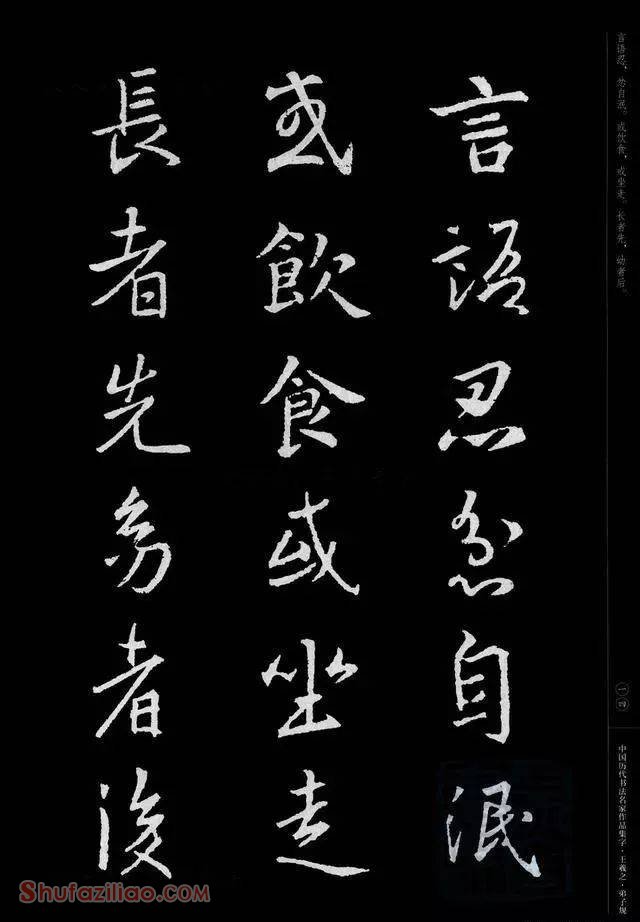 言語忍忿自泯
或飲食或坐走
長者先幼者後
言语忍，忿自泯。或饮食，或坐走。长者先，幼者后。
一四
中国历代书法名家作品集字·王羲之·弟子规
Shufaziliao.com